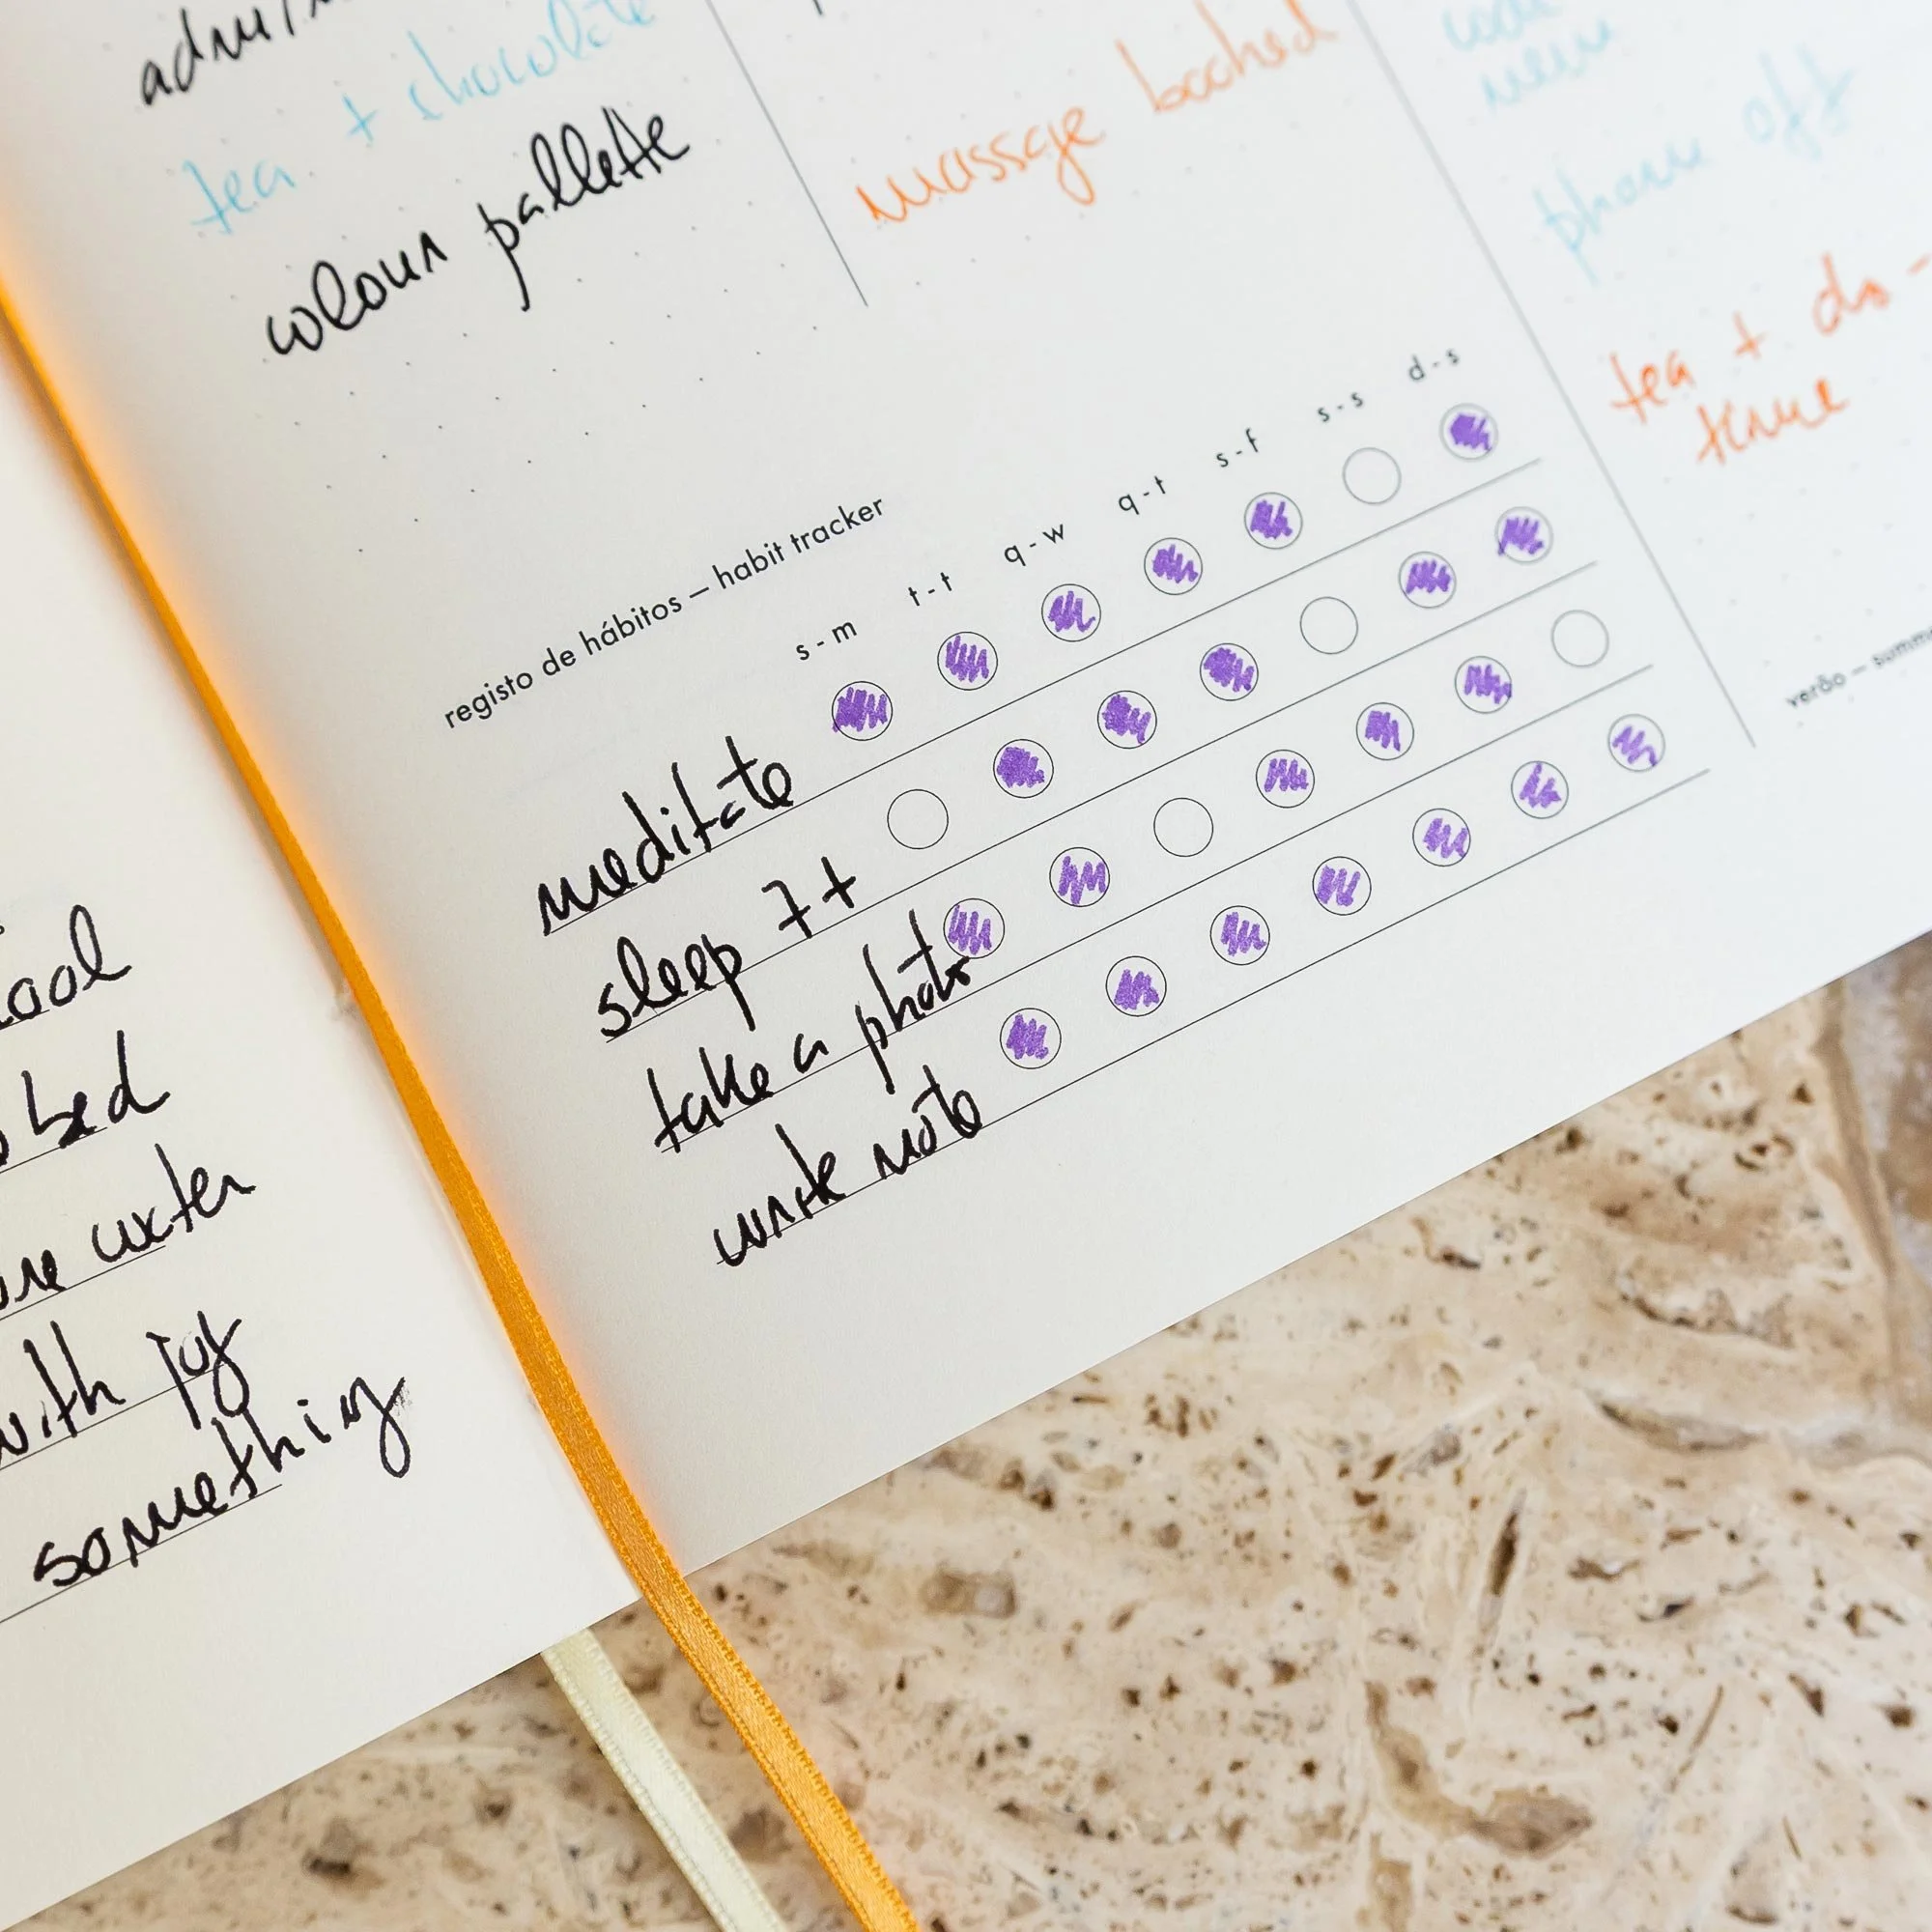 tea + chocolate
colour pallette
massage booked
phone off
tea + do -
time
registo de hábitos – habit tracker
s - m t - t q - w q - t s - f s - s d - s
meditate
sleep 7+
take a photo
write note
verão – summ
bed
water
with joy
something